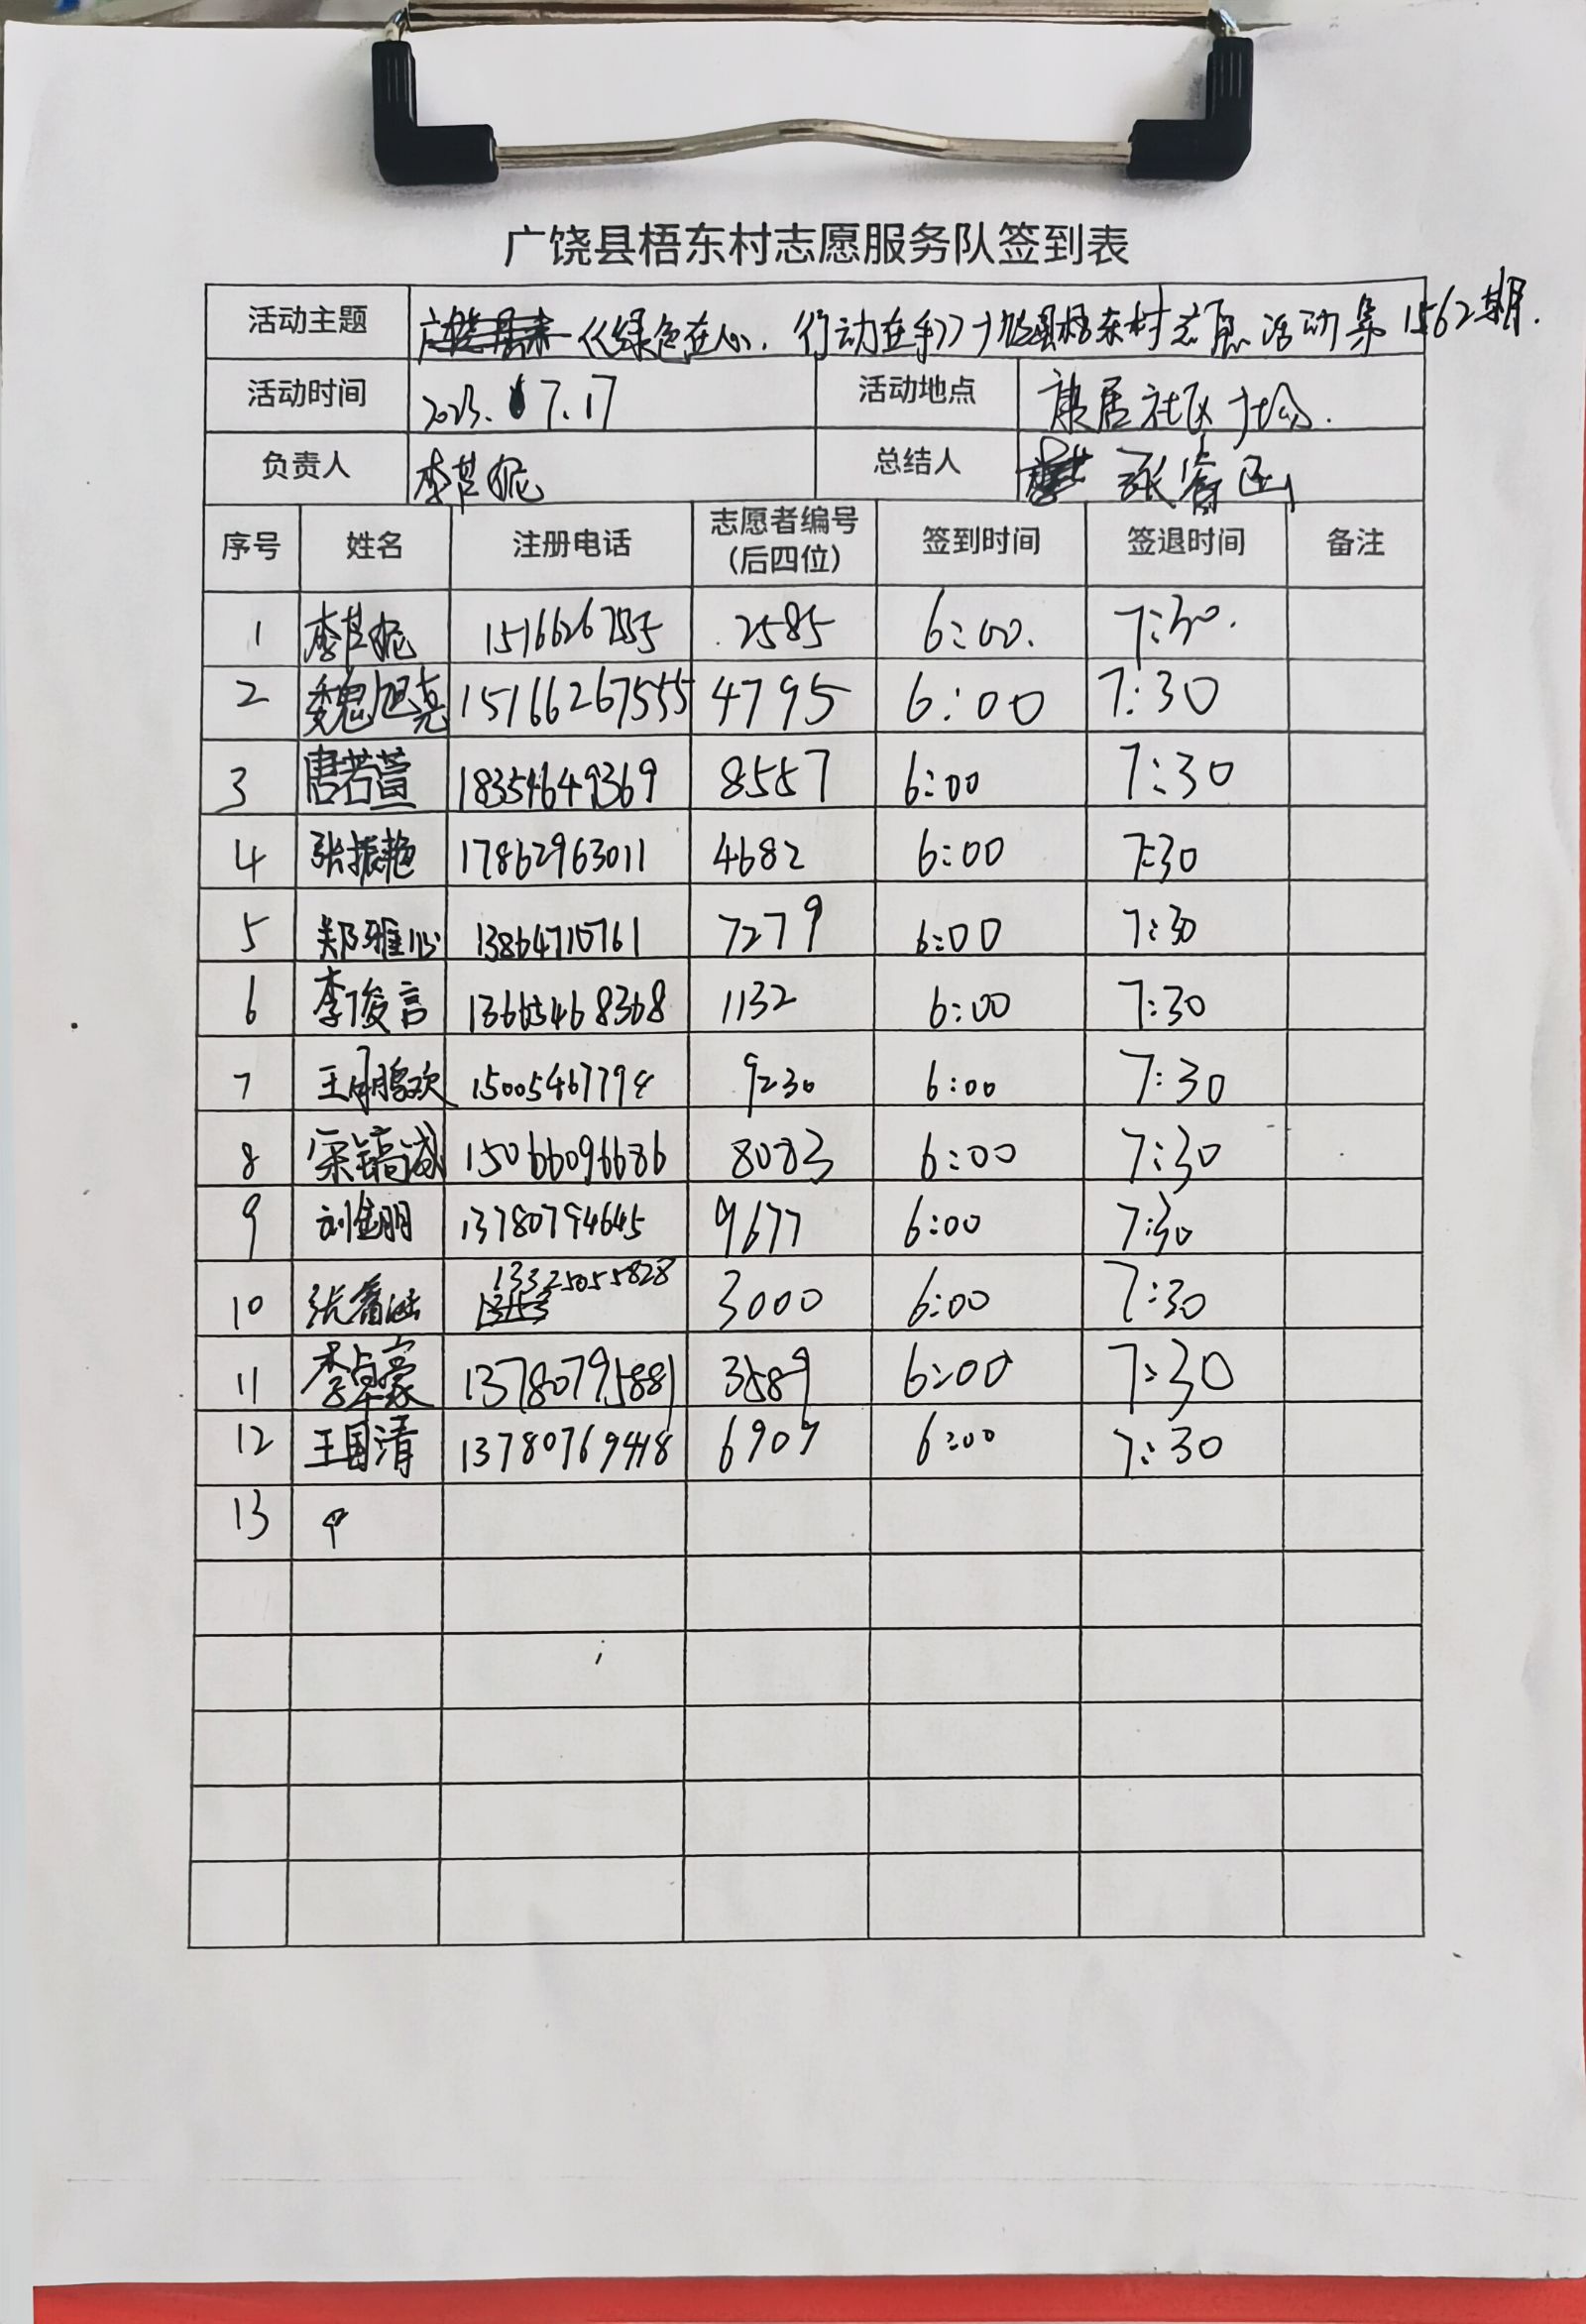 广饶县梧东村志愿服务队签到表
活动主题 《绿色在心、行动在手》广饶县梧东村志愿活动第1562期.
活动时间 2023.7.17 活动地点 康居社区办公.
负责人 李芸妮 总结人 张睿函
序号 姓名 注册电话 志愿者编号 签到时间 签退时间 备注
(后四位)
1 李芸妮 2585 6:00. 7:30.
2 魏旭尧 15166267555 4795 6:00 7:30
3 唐若萱 18354649369 8557 6:00 7:30
4 张振艳 17862963011 4682 6:00 7:30
5 郑雅心 13864710761 7279 6:00 7:30
6 李俊言 13665468368 1132 6:00 7:30
7 王鹏欢 15005467794 9230 6:00 7:30
8 宋镐诚 15066096686 8083 6:00 7:30
9 刘金朋 13780794645 9677 6:00 7:30
10 张睿涵 13325055828 3000 6:00 7:30
11 李卓豪 13780795881 3589 6:00 7:30
12 王国清 13780769418 6909 6:00 7:30
13